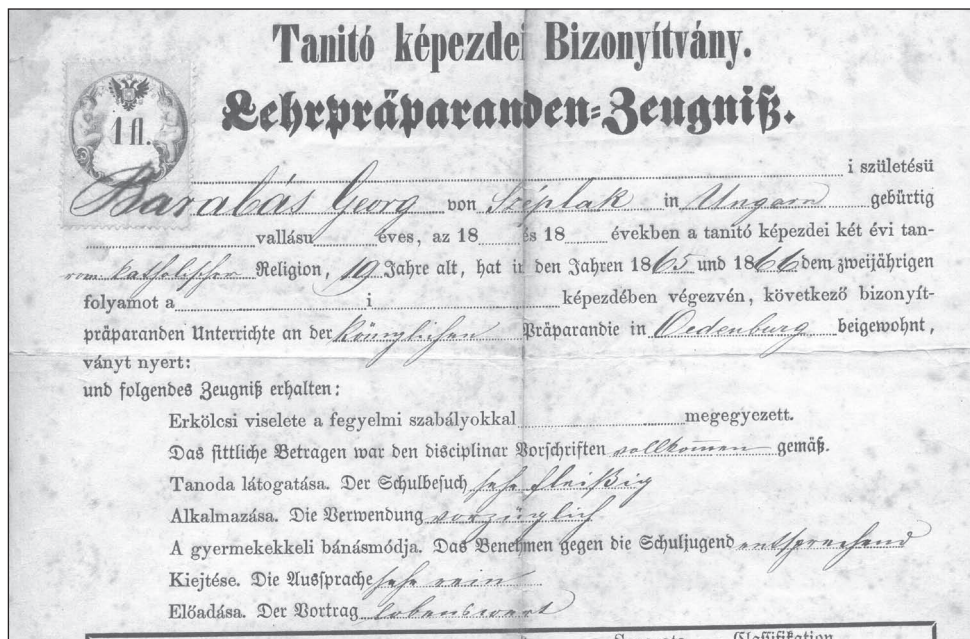 Tanitó képezdei Bizonyítvány.
Lehrpräparanden=Zeugniß.
1 fl.
i születésü
Barabás Georg von Széplak in Ungarn gebürtig
vallásu éves, az 18 és 18 években a tanító képezdei két évi tan-
rom. katholischer Religion, 19 Jahre alt, hat in den Jahren 1865 und 1866 dem zweijährigen
folyamot a i képezdében végezvén, következő bizonyít-
präparanden Unterrichte an der königlichen Präparandie in Oedenburg beigewohnt,
ványt nyert:
und folgendes Zeugniß erhalten:
Erkölcsi viselete a fegyelmi szabályokkal megegyezett.
Das sittliche Betragen war den disciplinar Vorschriften vollkommen gemäß.
Tanoda látogatása. Der Schulbesuch sehr fleißig
Alkalmazása. Die Verwendung vorzüglich
A gyermekekkeli bánásmódja. Das Benehmen gegen die Schuljugend entsprechend
Kiejtése. Die Aussprache sehr rein
Előadása. Der Vortrag lobenswert
Classifikation